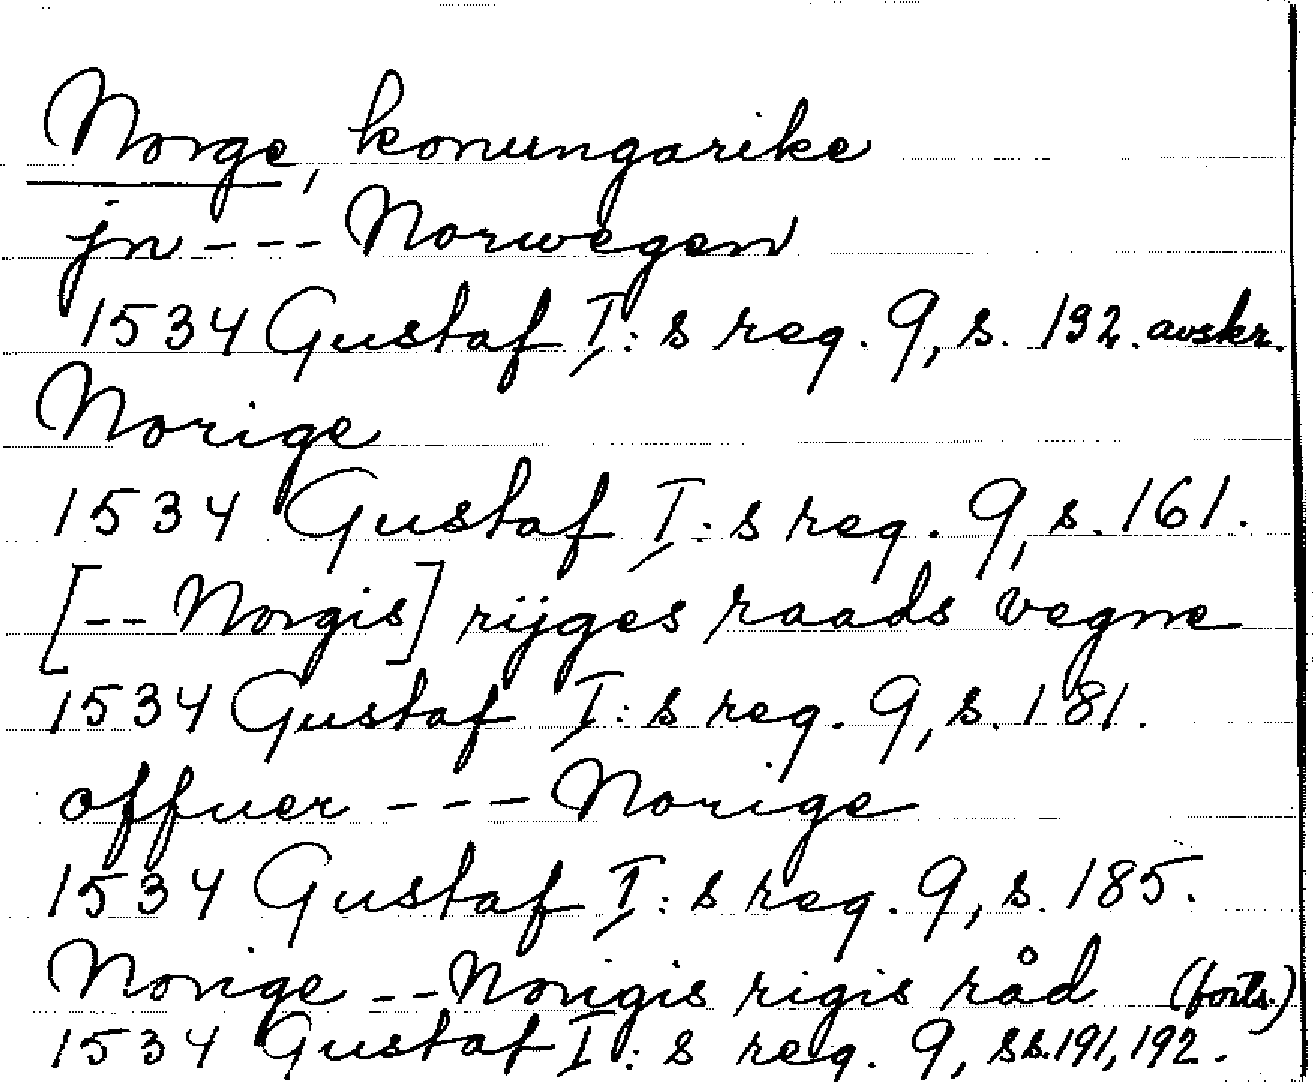 Norge, konungarike
jn --- Norwegen
1534 Gustaf I:s reg. 9, s. 132. avskr.
Norige
1534 Gustaf I:s reg. 9, s. 161.
[-- Norgis] rijges raads vegne
1534 Gustaf I:s reg. 9, s. 181.
offuer --- Norige
1534 Gustaf I:s reg. 9, s. 185.
Norige -- Norigis rigis råd (forts.)
1534 Gustaf I:s reg. 9, ss. 191, 192.